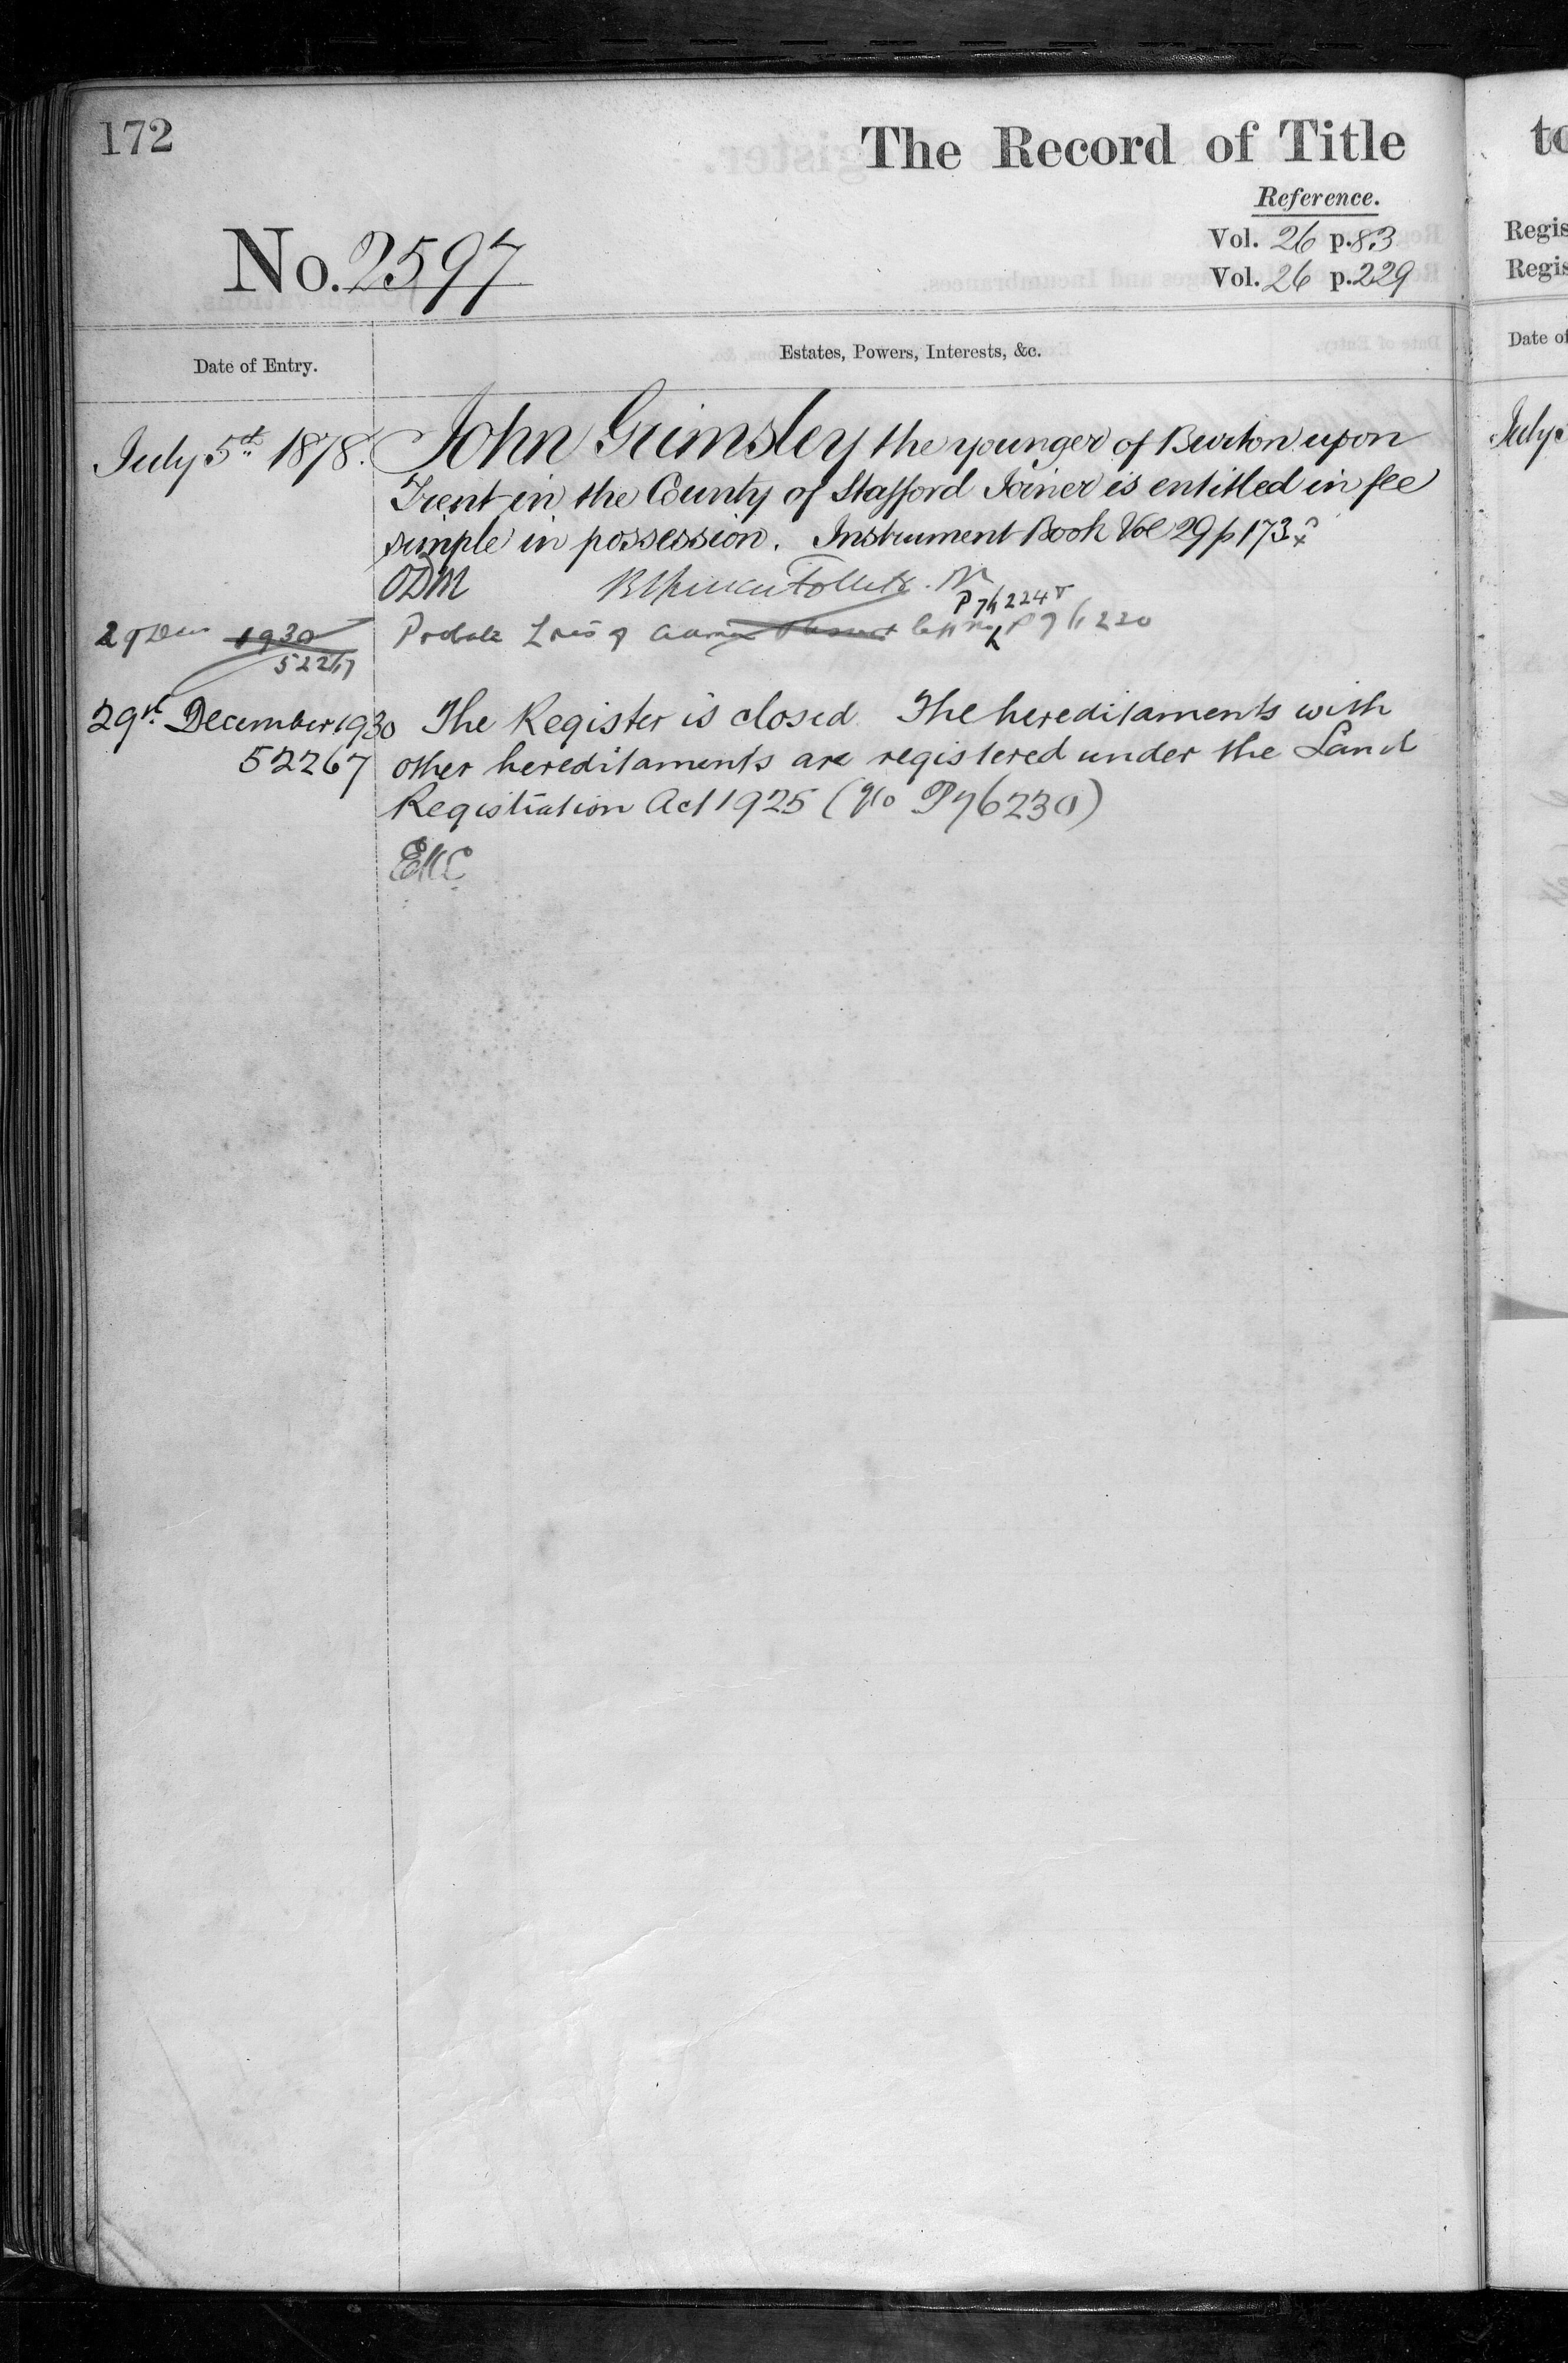 172
The Record of Title
Reference.
No. 2597
Vol. 26 p. 83
Vol. 26 p. 229
Date of Entry.
Estates, Powers, Interests, &c.
July 5th 1878.
John Grimsley the younger of Burton upon
Trent in the County of Stafford Joiner is entitled in fee
simple in possession. Instrument Book Vol 29 p 173
ODM
29 Dec 1930
52267
Probate
29th December 1930
52267
The Register is closed. The hereditaments with
other hereditaments are registered under the Land
Registration Act 1925 (No P76230)
to
Regis
Regis
Date of
July